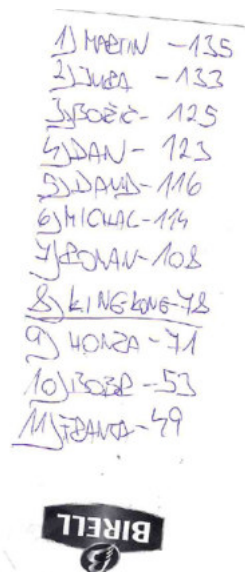 1) MARTIN - 135
2) JURA - 133
3) BOŽIČ - 125
4) DAN - 123
5) DAVID - 116
6) MICHAL - 114
7) ROMAN - 108
8) KING-KONG - 78
9) HONZA - 71
10) BOBR - 53
11) FRANTA - 49
BIRELL